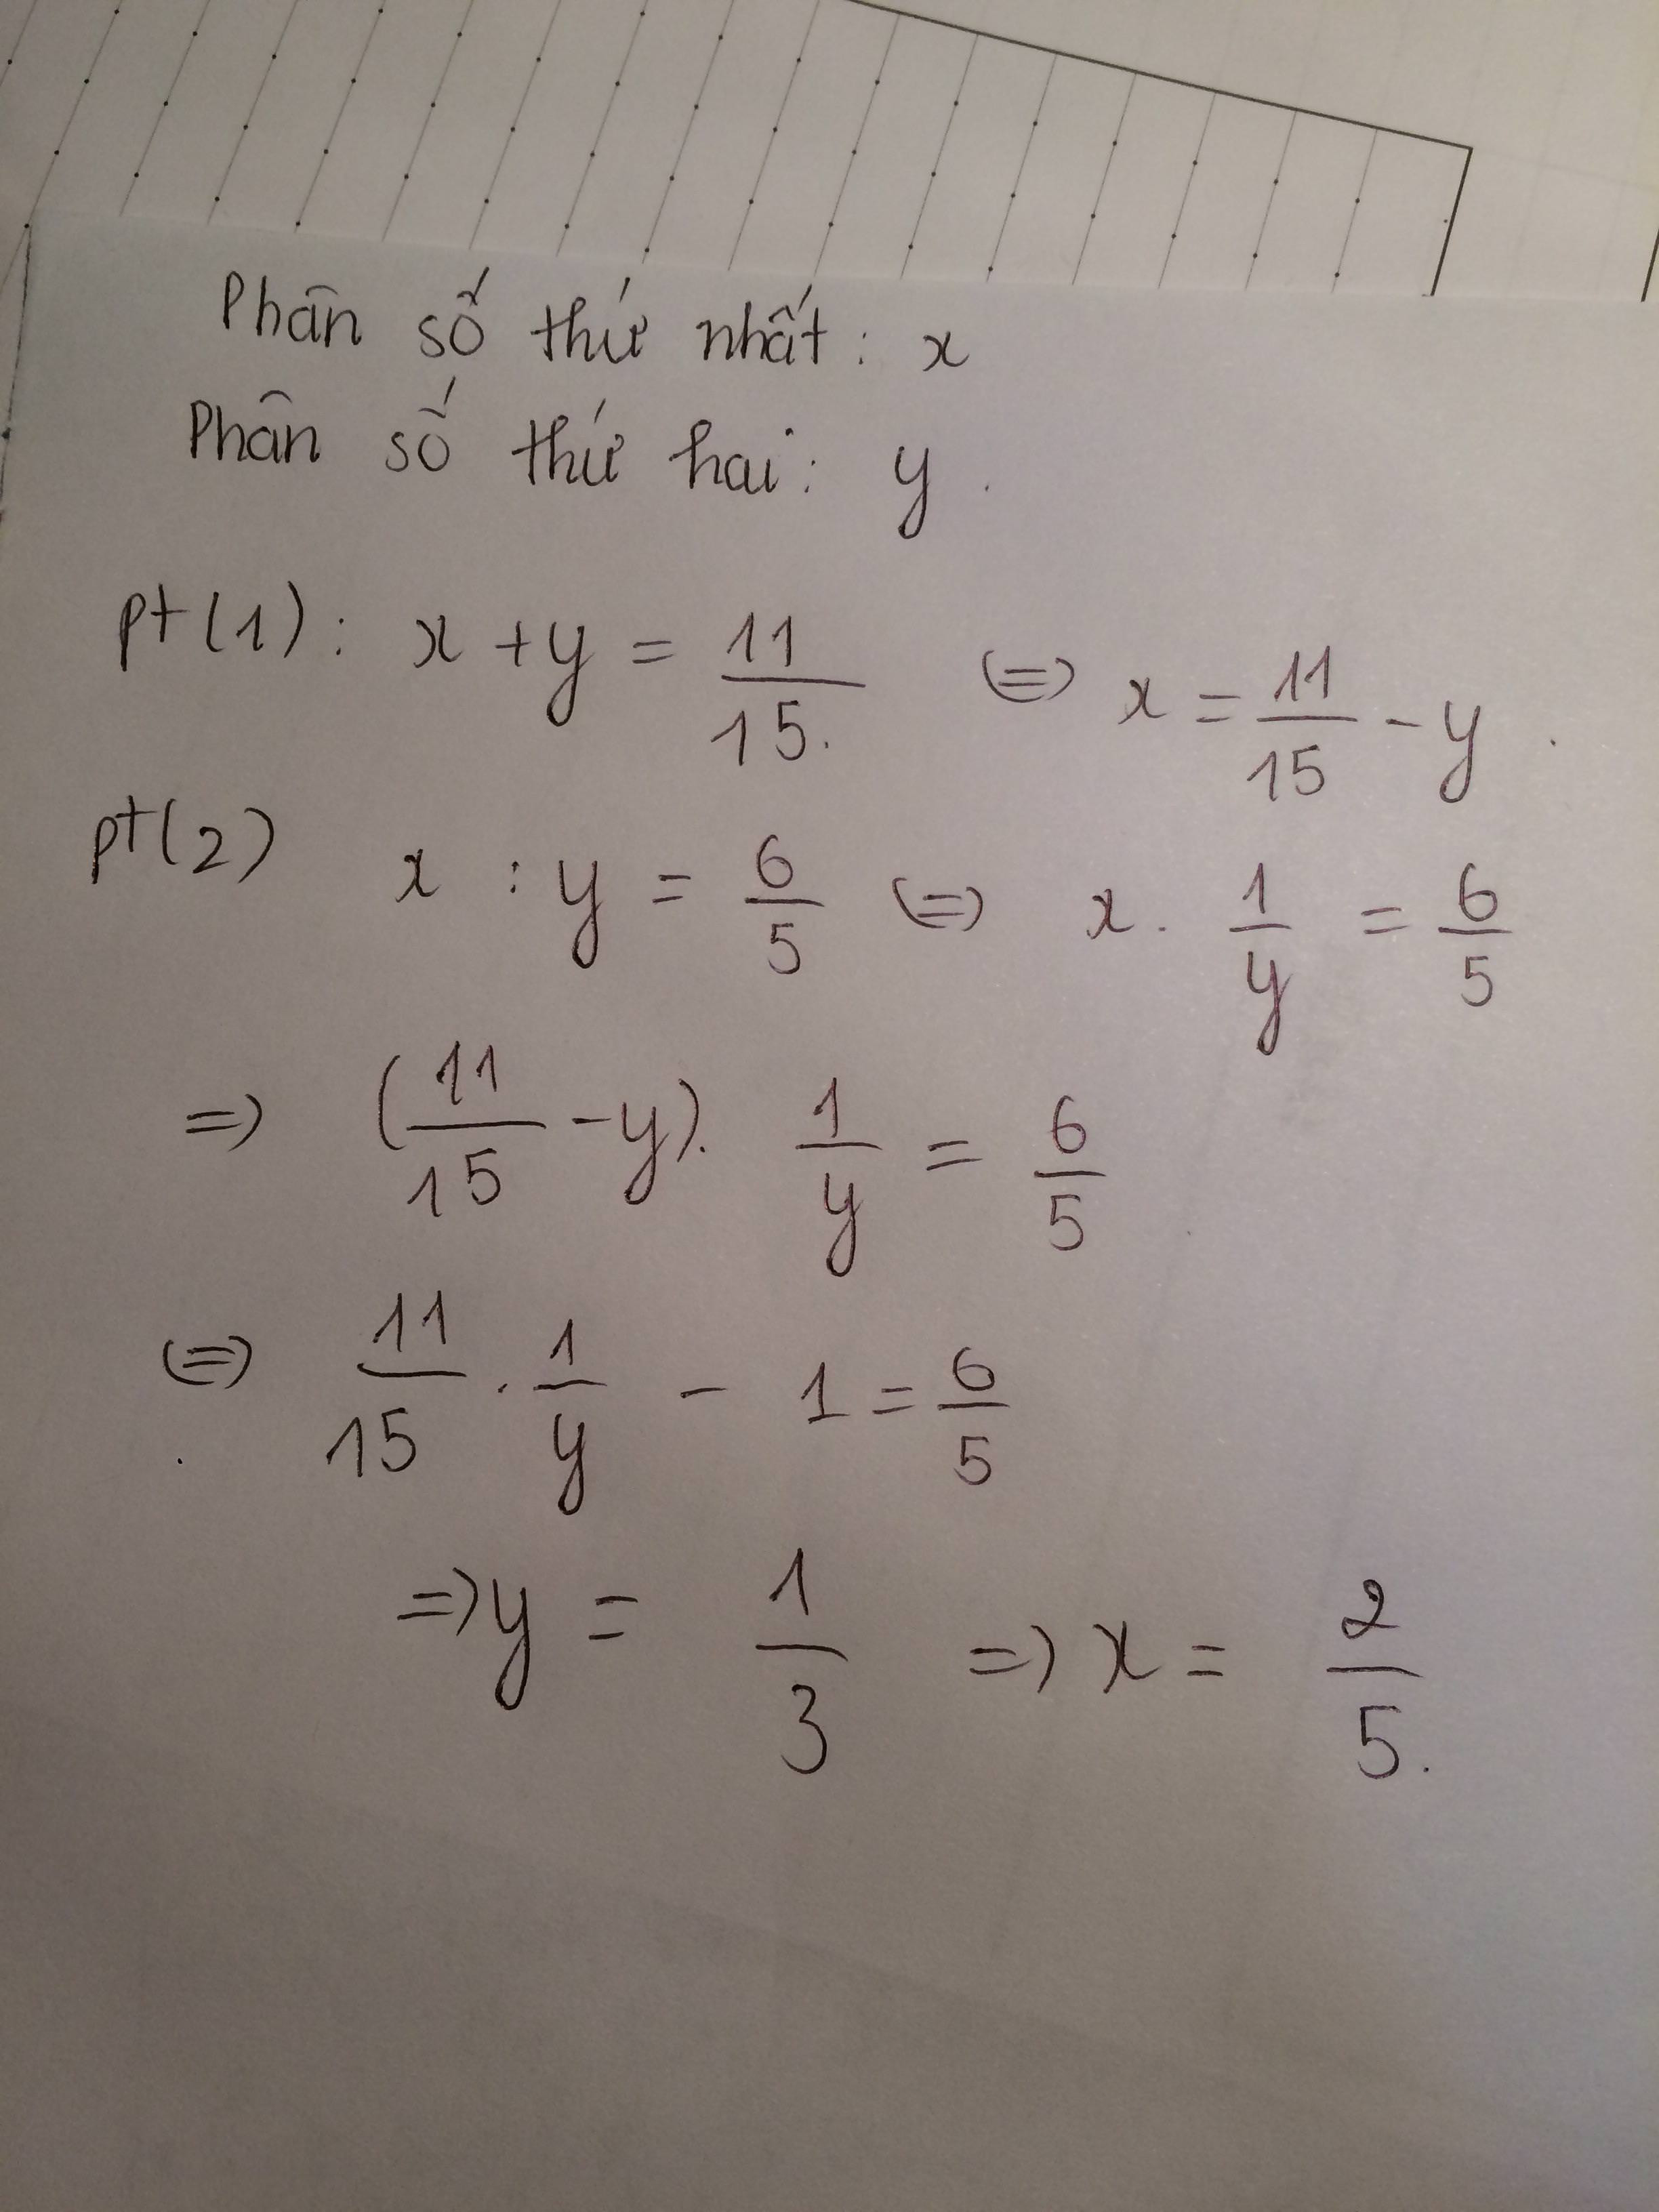 Phân số thứ nhất: x
Phân số thứ hai: y.
pt(1): x + y = 11/15. (=) x = 11/15 - y.
pt(2) x : y = 6/5 (=) x. 1/y = 6/5
=) (11/15 - y). 1/y = 6/5
(=) 11/15 . 1/y - 1 = 6/5
=) y = 1/3 =) x = 2/5.